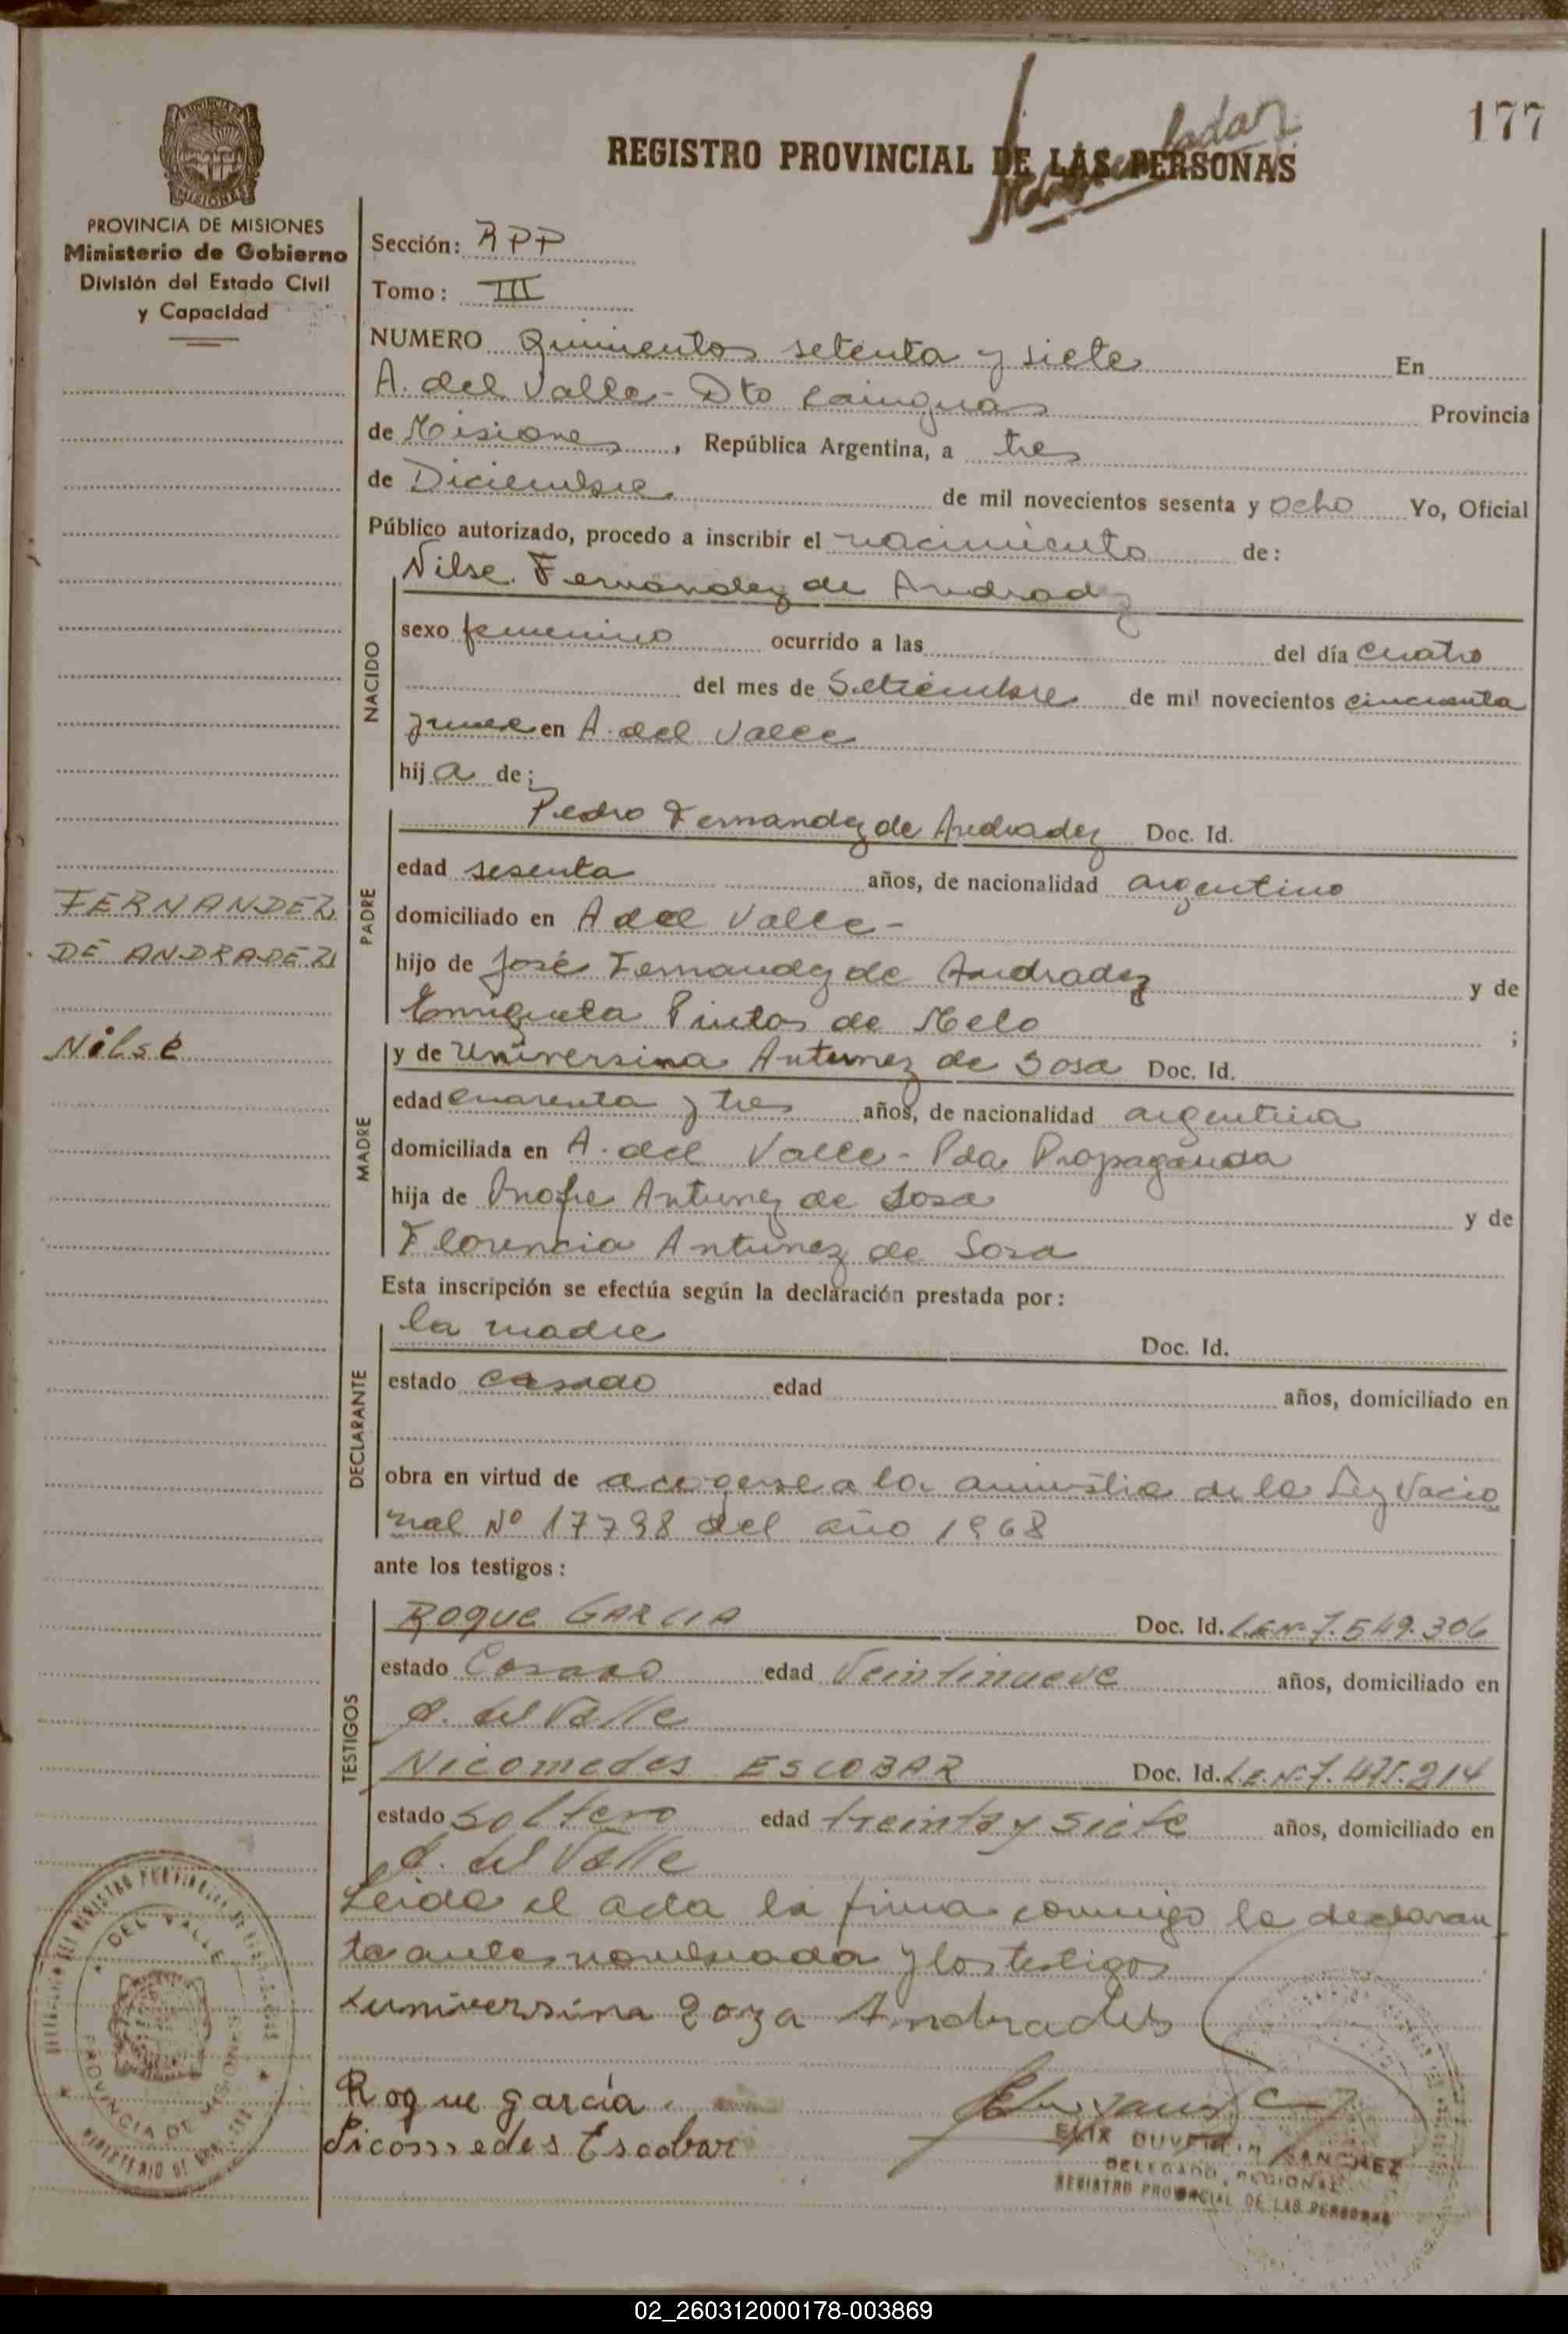 177
REGISTRO PROVINCIAL DE LAS PERSONAS
PROVINCIA DE MISIONES
Ministerio de Gobierno
División del Estado Civil
y Capacidad
Sección: RPP
Tomo: III
NUMERO Quinientos setenta y siete En
A. del Valle - Dto Cainguas Provincia
de Misiones, República Argentina, a tres
de Diciembre de mil novecientos sesenta y ocho Yo, Oficial
Público autorizado, procedo a inscribir el nacimiento de:
Nilse Fernandez de Andradez
NACIDO
sexo femenino ocurrido a las del día cuatro
del mes de Setiembre de mil novecientos cincuenta
y nueve en A. del Valle
hija de:
PADRE
Pedro Fernandez de Andradez Doc. Id.
edad sesenta años, de nacionalidad argentino
domiciliado en A del Valle -
hijo de José Fernandez de Andradez y de
Enriqueta Pintos de Melo ;
FERNANDEZ
DE ANDRADEZ
Nilse
MADRE
y de Universina Antunez de Sosa Doc. Id.
edad cuarenta y tres años, de nacionalidad argentina
domiciliada en A. del Valle - Pda Propaganda
hija de Onofre Antunez de Sosa y de
Florencia Antunez de Sosa
Esta inscripción se efectúa según la declaración prestada por:
DECLARANTE
la madre Doc. Id.
estado casado edad años, domiciliado en
obra en virtud de acogerse a la amnistia de la Ley Nacio
nal Nº 17798 del año 1968
ante los testigos:
TESTIGOS
Roque GARCIA Doc. Id. L.E. Nº 7.549.306
estado Casado edad Veintinueve años, domiciliado en
A. del Valle
Nicomedes ESCOBAR Doc. Id. L.E. Nº 7.475.214
estado soltero edad treinta y siete años, domiciliado en
A. del Valle
Leida el acta la firma conmigo la declaran
te antes nombrada y los testigos
universina Soza Andrades
Roque garcía
Nicomedes Escobar
SANCHEZ
DELEGADO REGIONAL
REGISTRO PROVINCIAL DE LAS PERSONAS
DEL VALLE
PROVINCIA DE MISIONES
02_260312000178-003869